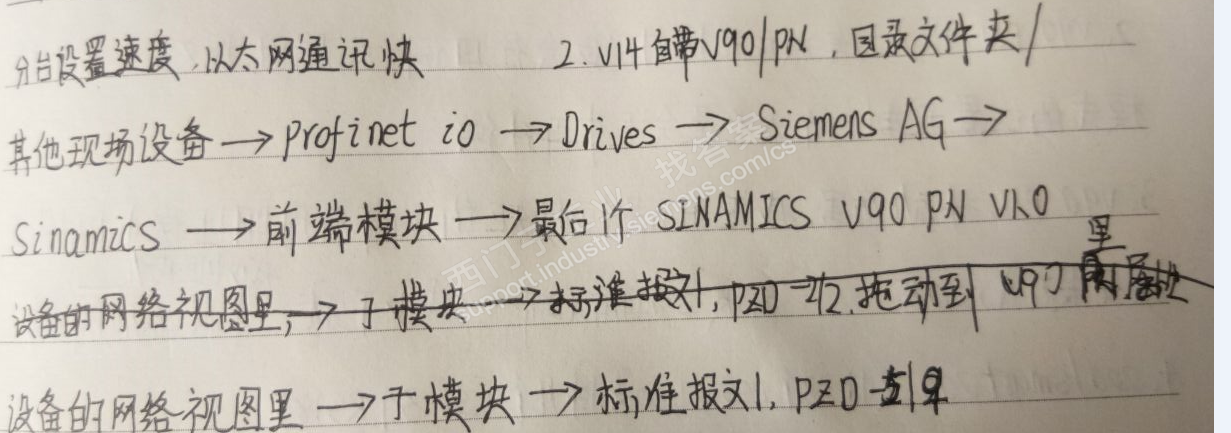 分台设置速度,以太网通讯快 2. V14自带V90/PN,目录文件夹/
其他现场设备→Profinet io→Drives→Siemens AG→
Sinamics→前端模块→最后1个 SINAMICS V90 PN V1.0
里
设备的网络视图里,→子模块→标准报文1, PZD-2/2,拖动到 V90
设备的网络视图里→子模块→标准报文1, PZD
西门子工业 找答案
support.industry.siemens.com/cs